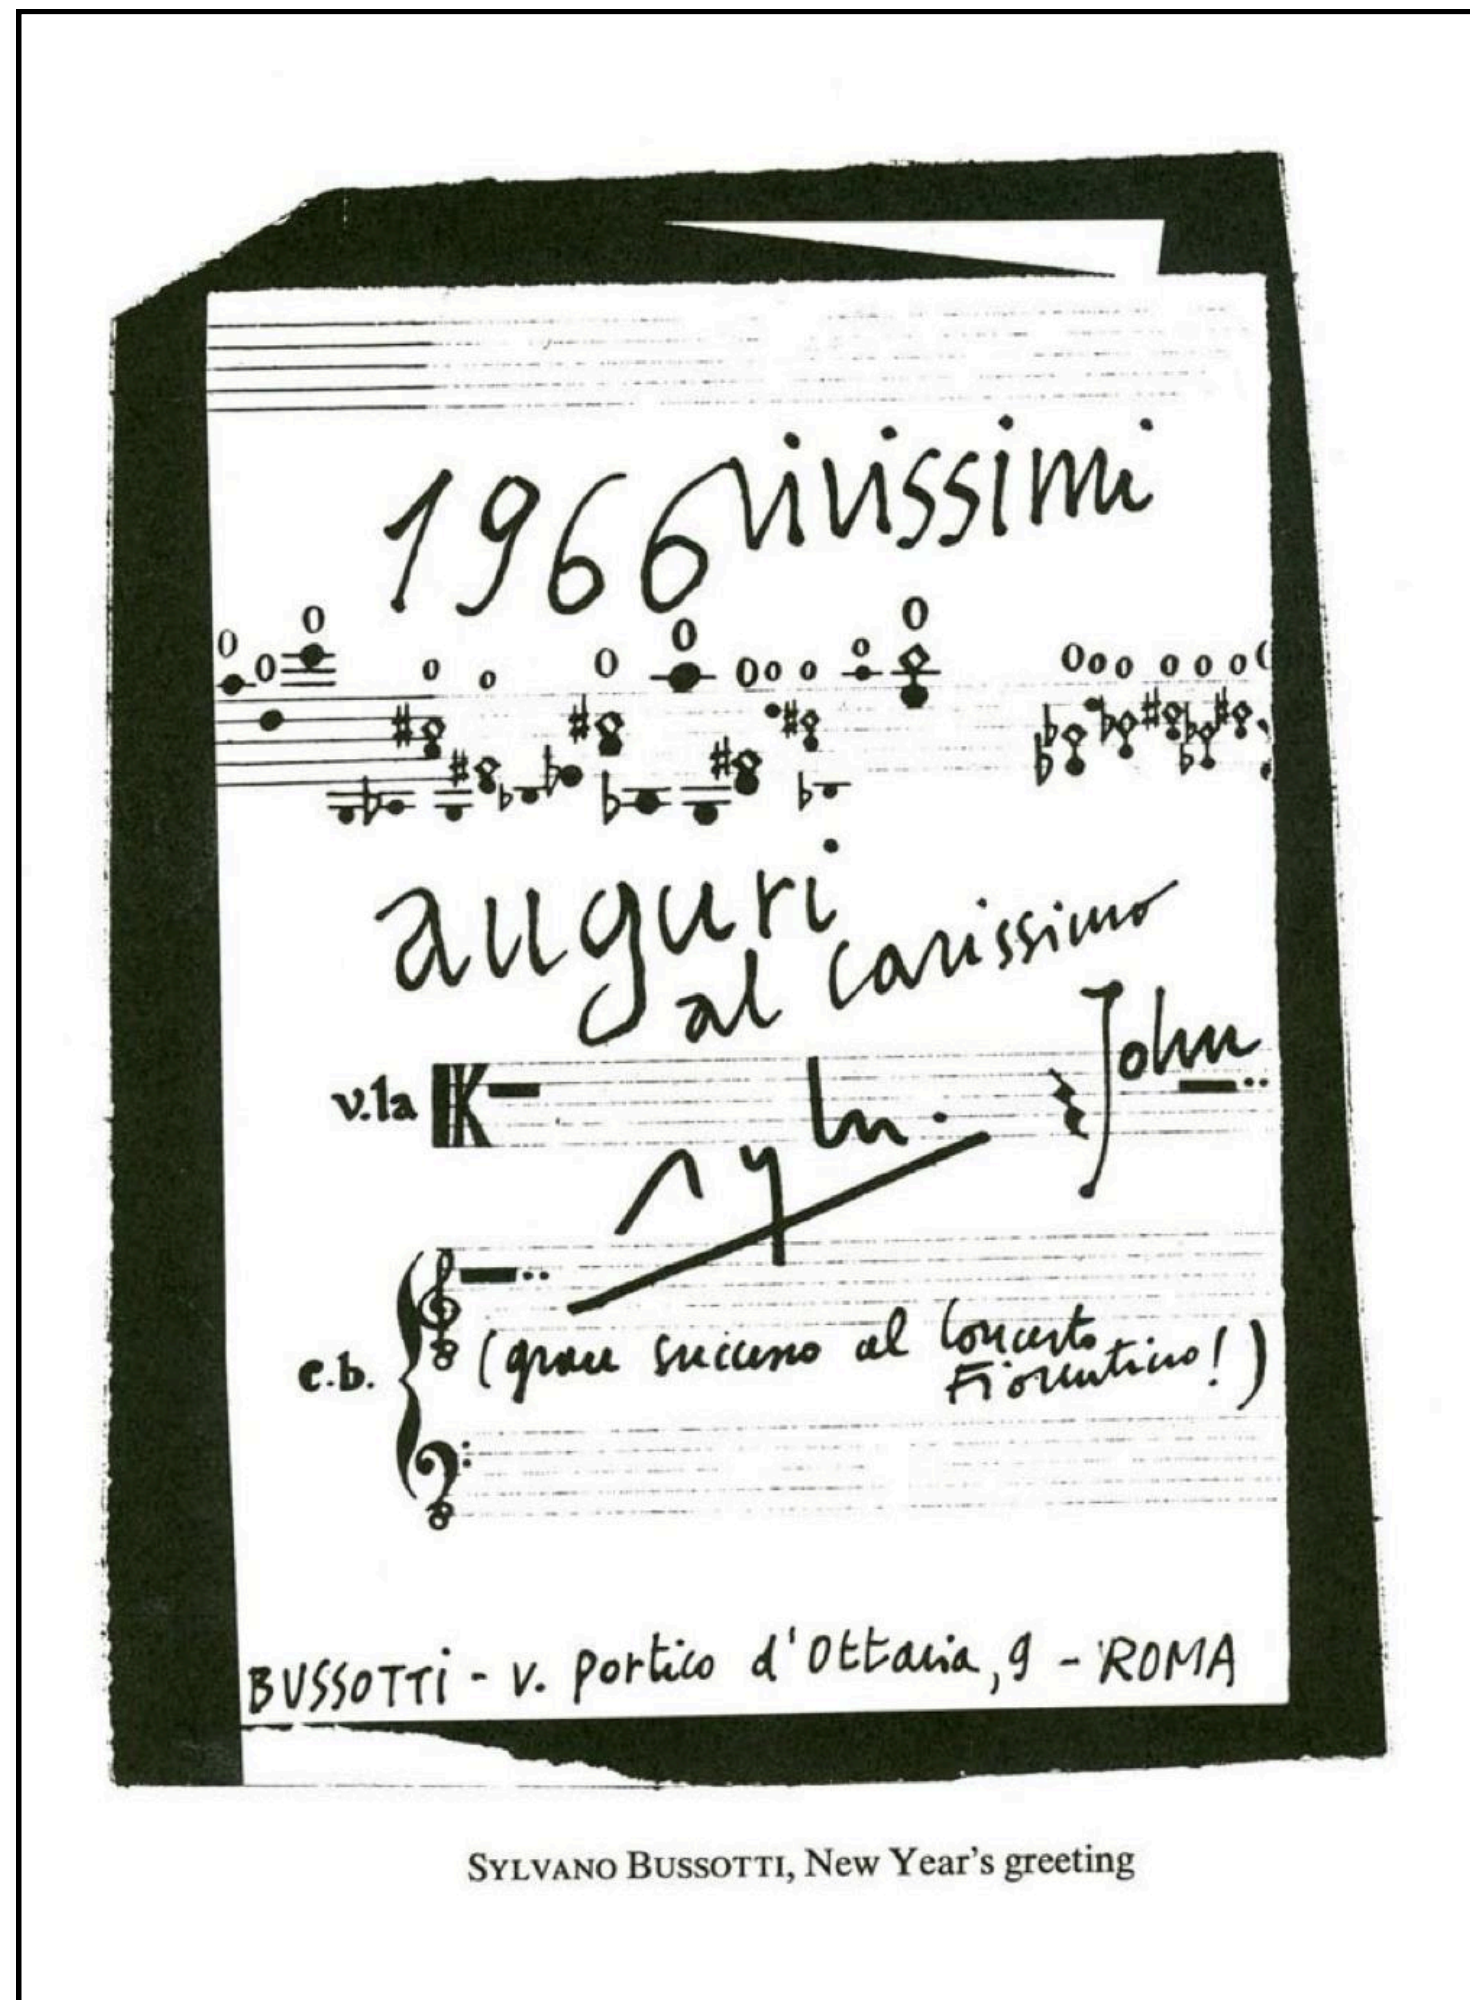 1966 vivissimi
auguri
al carissimo
John
v.la
sylv.
c.b.
(gran successo al Concerto
Fiorentino!)
BUSSOTTI - v. Portico d'Ottavia, 9 - ROMA
SYLVANO BUSSOTTI, New Year's greeting